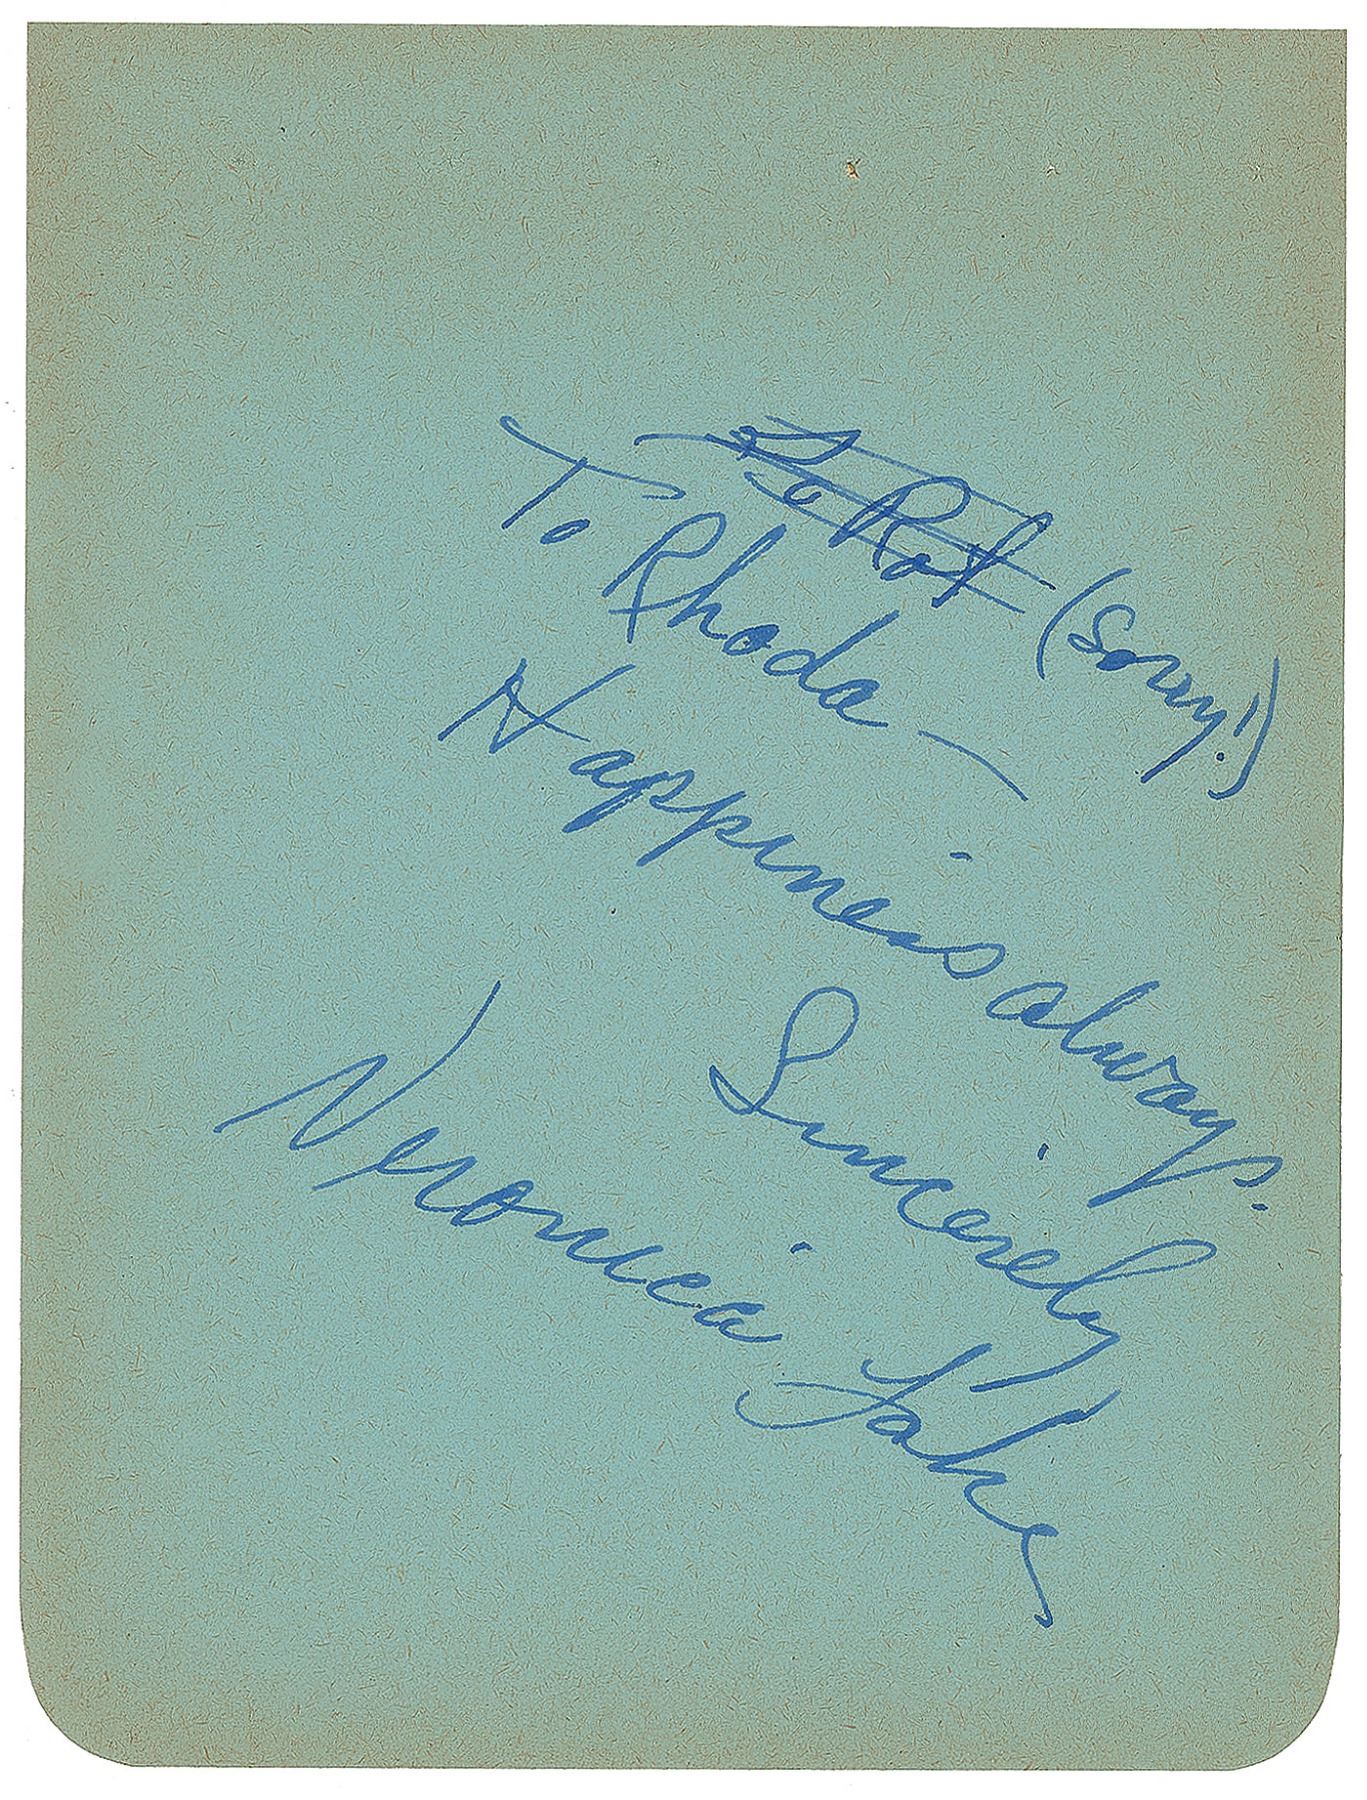 To Rot (Sorry!)
To Rhoda —
Happiness always.
Sincerely
Veronica Lake